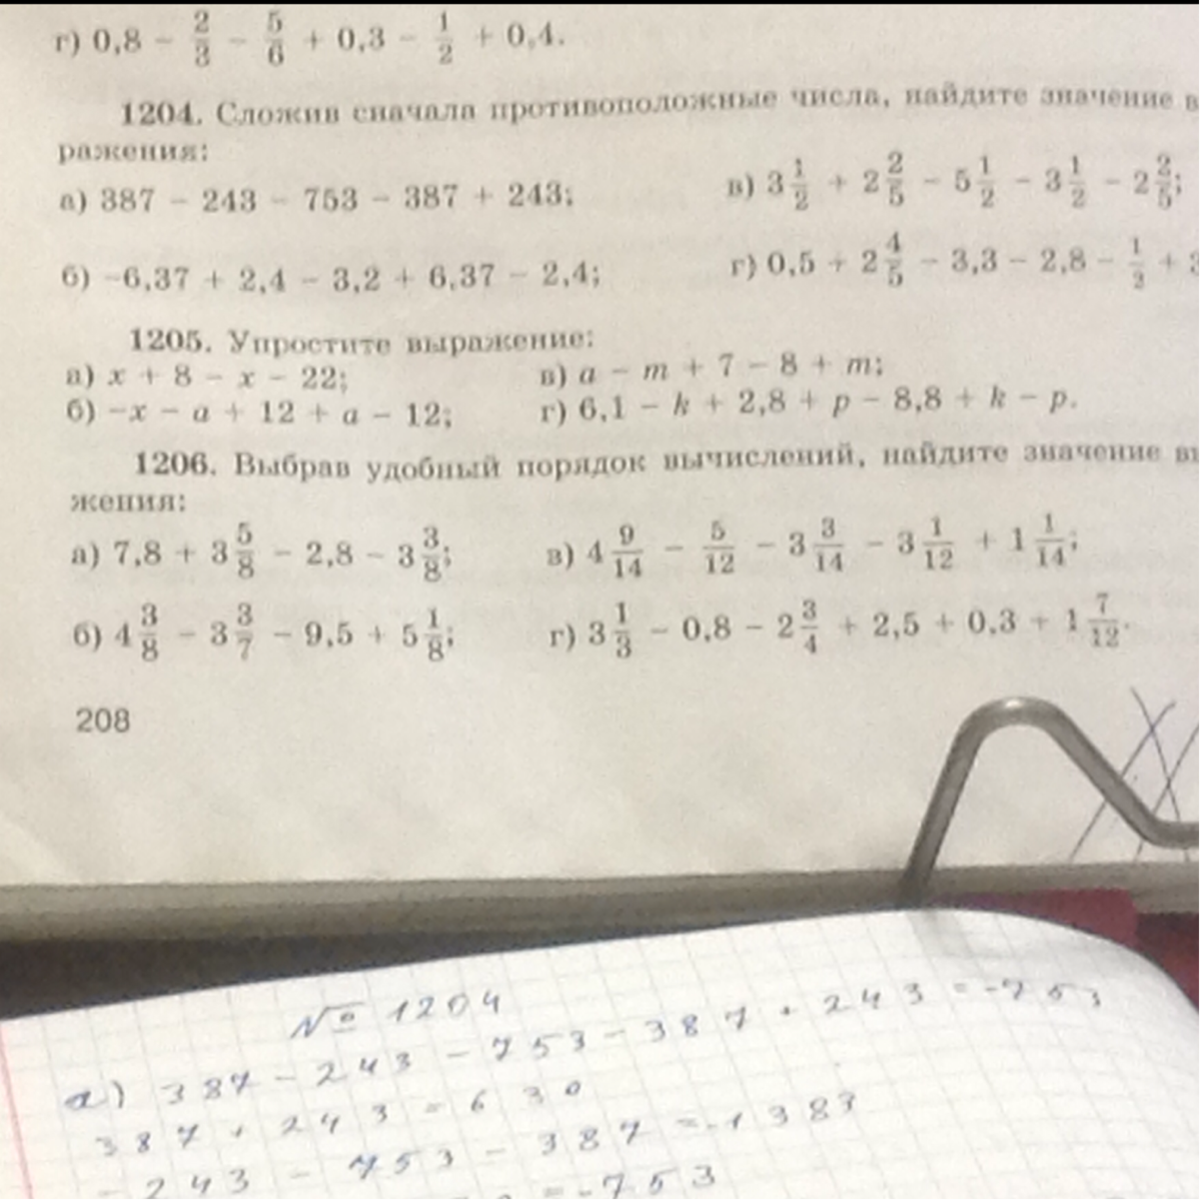 г) 0,8 − 2/3 − 5/6 + 0,3 − 1/2 + 0,4.
1204. Сложив сначала противоположные числа, найдите значение в
ражения:
а) 387 − 243 − 753 − 387 + 243; в) 3 1/2 + 2 2/5 − 5 1/2 − 3 1/2 − 2 2/5;
б) −6,37 + 2,4 − 3,2 + 6,37 − 2,4; г) 0,5 + 2 4/5 − 3,3 − 2,8 − 1/2 + 3
1205. Упростите выражение:
а) x + 8 − x − 22; в) a − m + 7 − 8 + m;
б) −x − a + 12 + a − 12; г) 6,1 − k + 2,8 + p − 8,8 + k − p.
1206. Выбрав удобный порядок вычислений, найдите значение вы
жения:
а) 7,8 + 3 5/8 − 2,8 − 3 3/8; в) 4 9/14 − 5/12 − 3 3/14 − 3 1/12 + 1 1/14;
б) 4 3/8 − 3 3/7 − 9,5 + 5 1/8; г) 3 1/3 − 0,8 − 2 3/4 + 2,5 + 0,3 + 1 7/12.
208
№ 1204
а) 387 − 243 − 753 − 387 + 243 = -753
387 + 243 = 630
− 243 − 753 − 387 = -1383
= -753